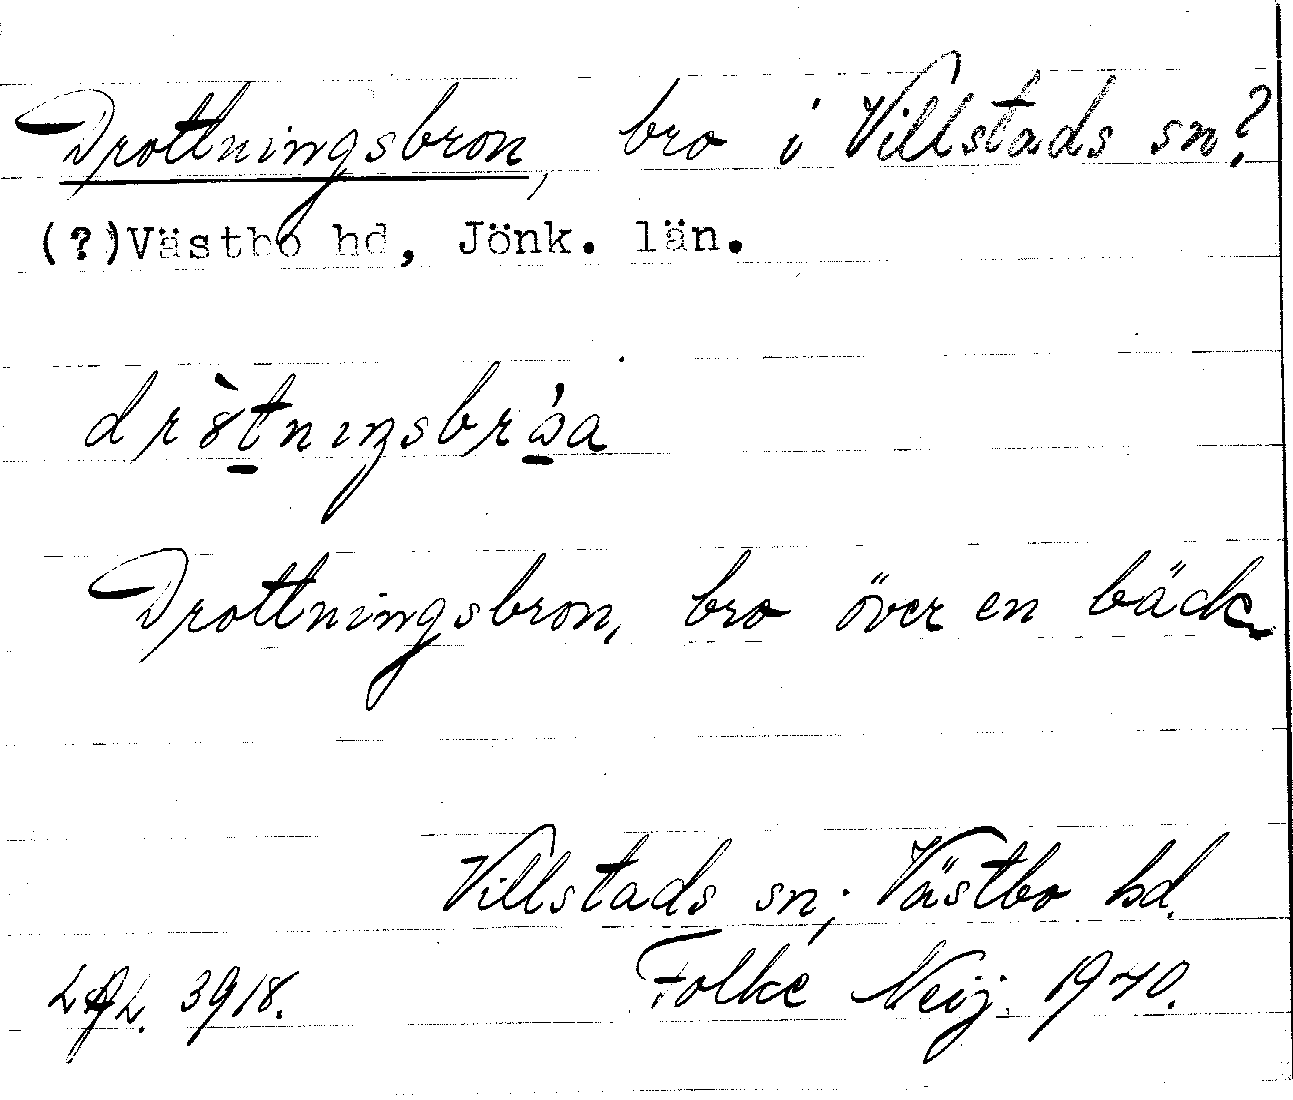 Drottningsbron, bro i Villstads sn?
(?)Västbo hd, Jönk. län.
Drottningsbron, bro över en bäck
Villstads sn; Västbo hd.
3918. Folke Neij. 1940.